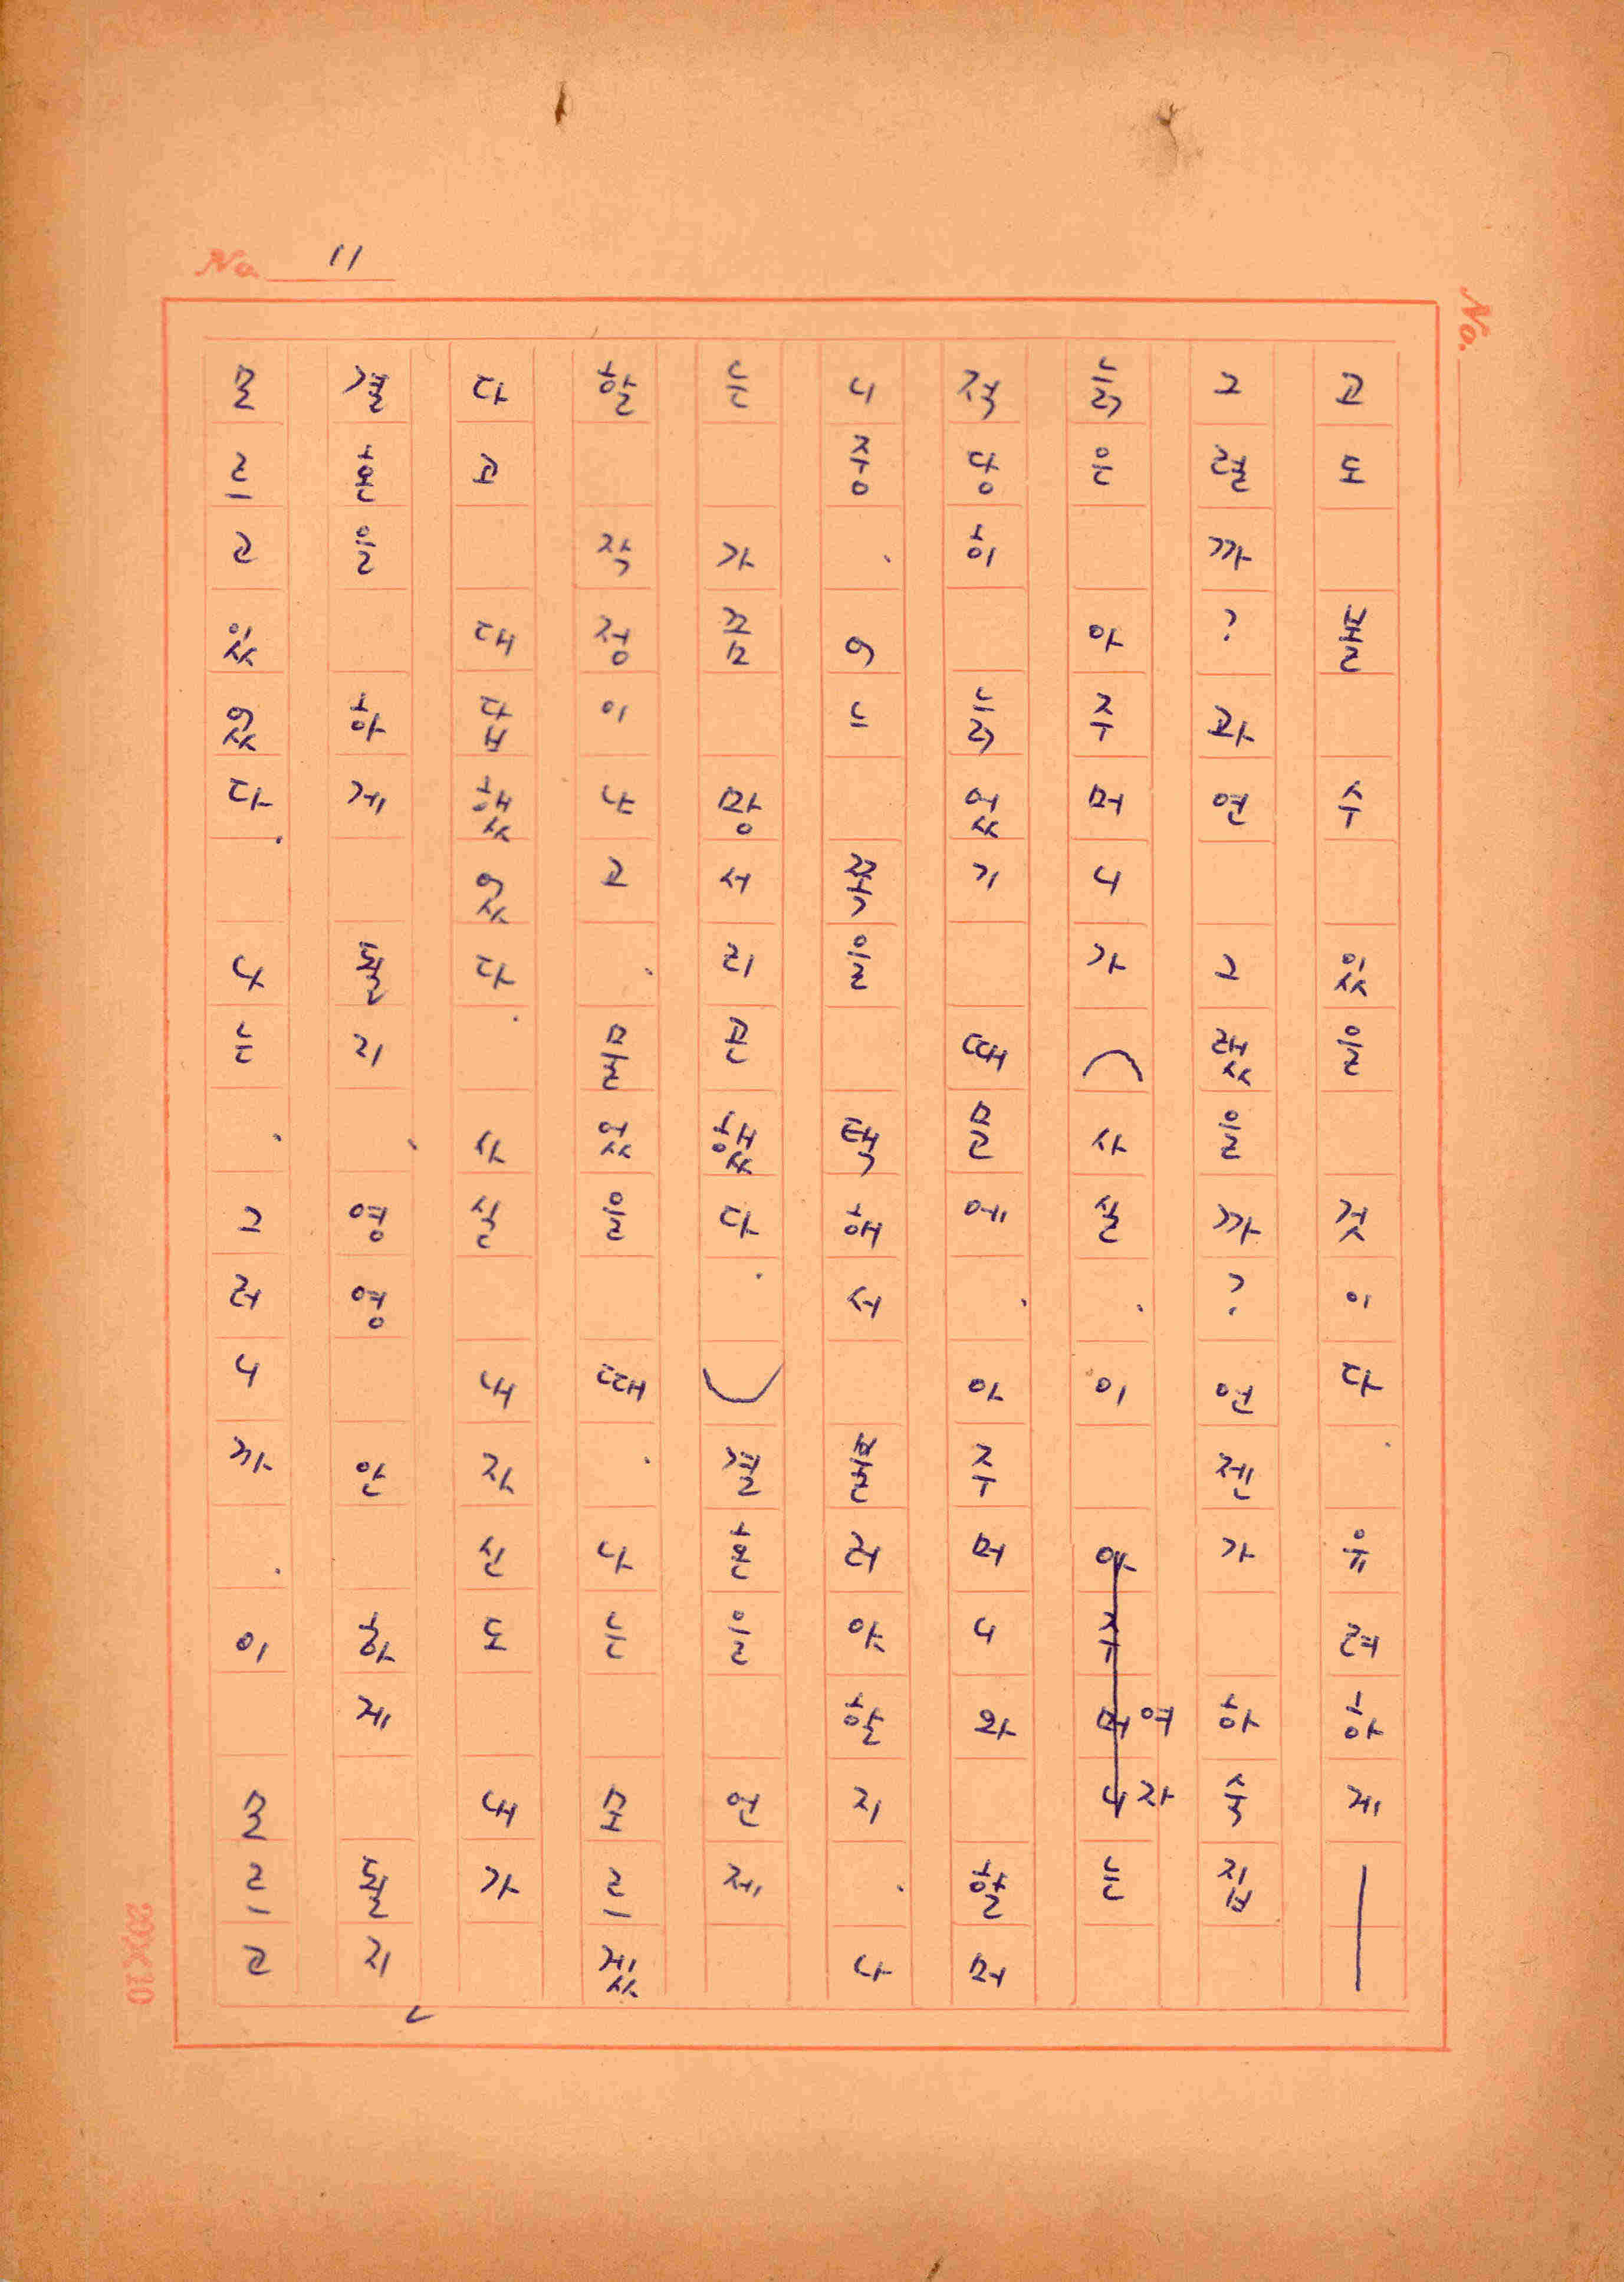 고도 수 있을 것이다. 유려하게—
그럴까? 과연 그랬을까? 언젠가 하숙집
늙은 아주머니가 (사실, 이 아주머니 여자는
적당히 늙었기 때문에, 아주머니와 할머
니 중, 어느 쪽을 택해서 불러야 할지, 나
는 가끔 망서리곤 했다.) 결혼을 언제
할 작정이냐고, 물었을 때, 나는 모르겠
다고 대답했었다. 사실 내 자신도 내가
결혼을 하게 될지, 영영 안 하게 될지
모르고 있었다. 나는, 그러니까, 이 모르고
No. 11
No.
20X10